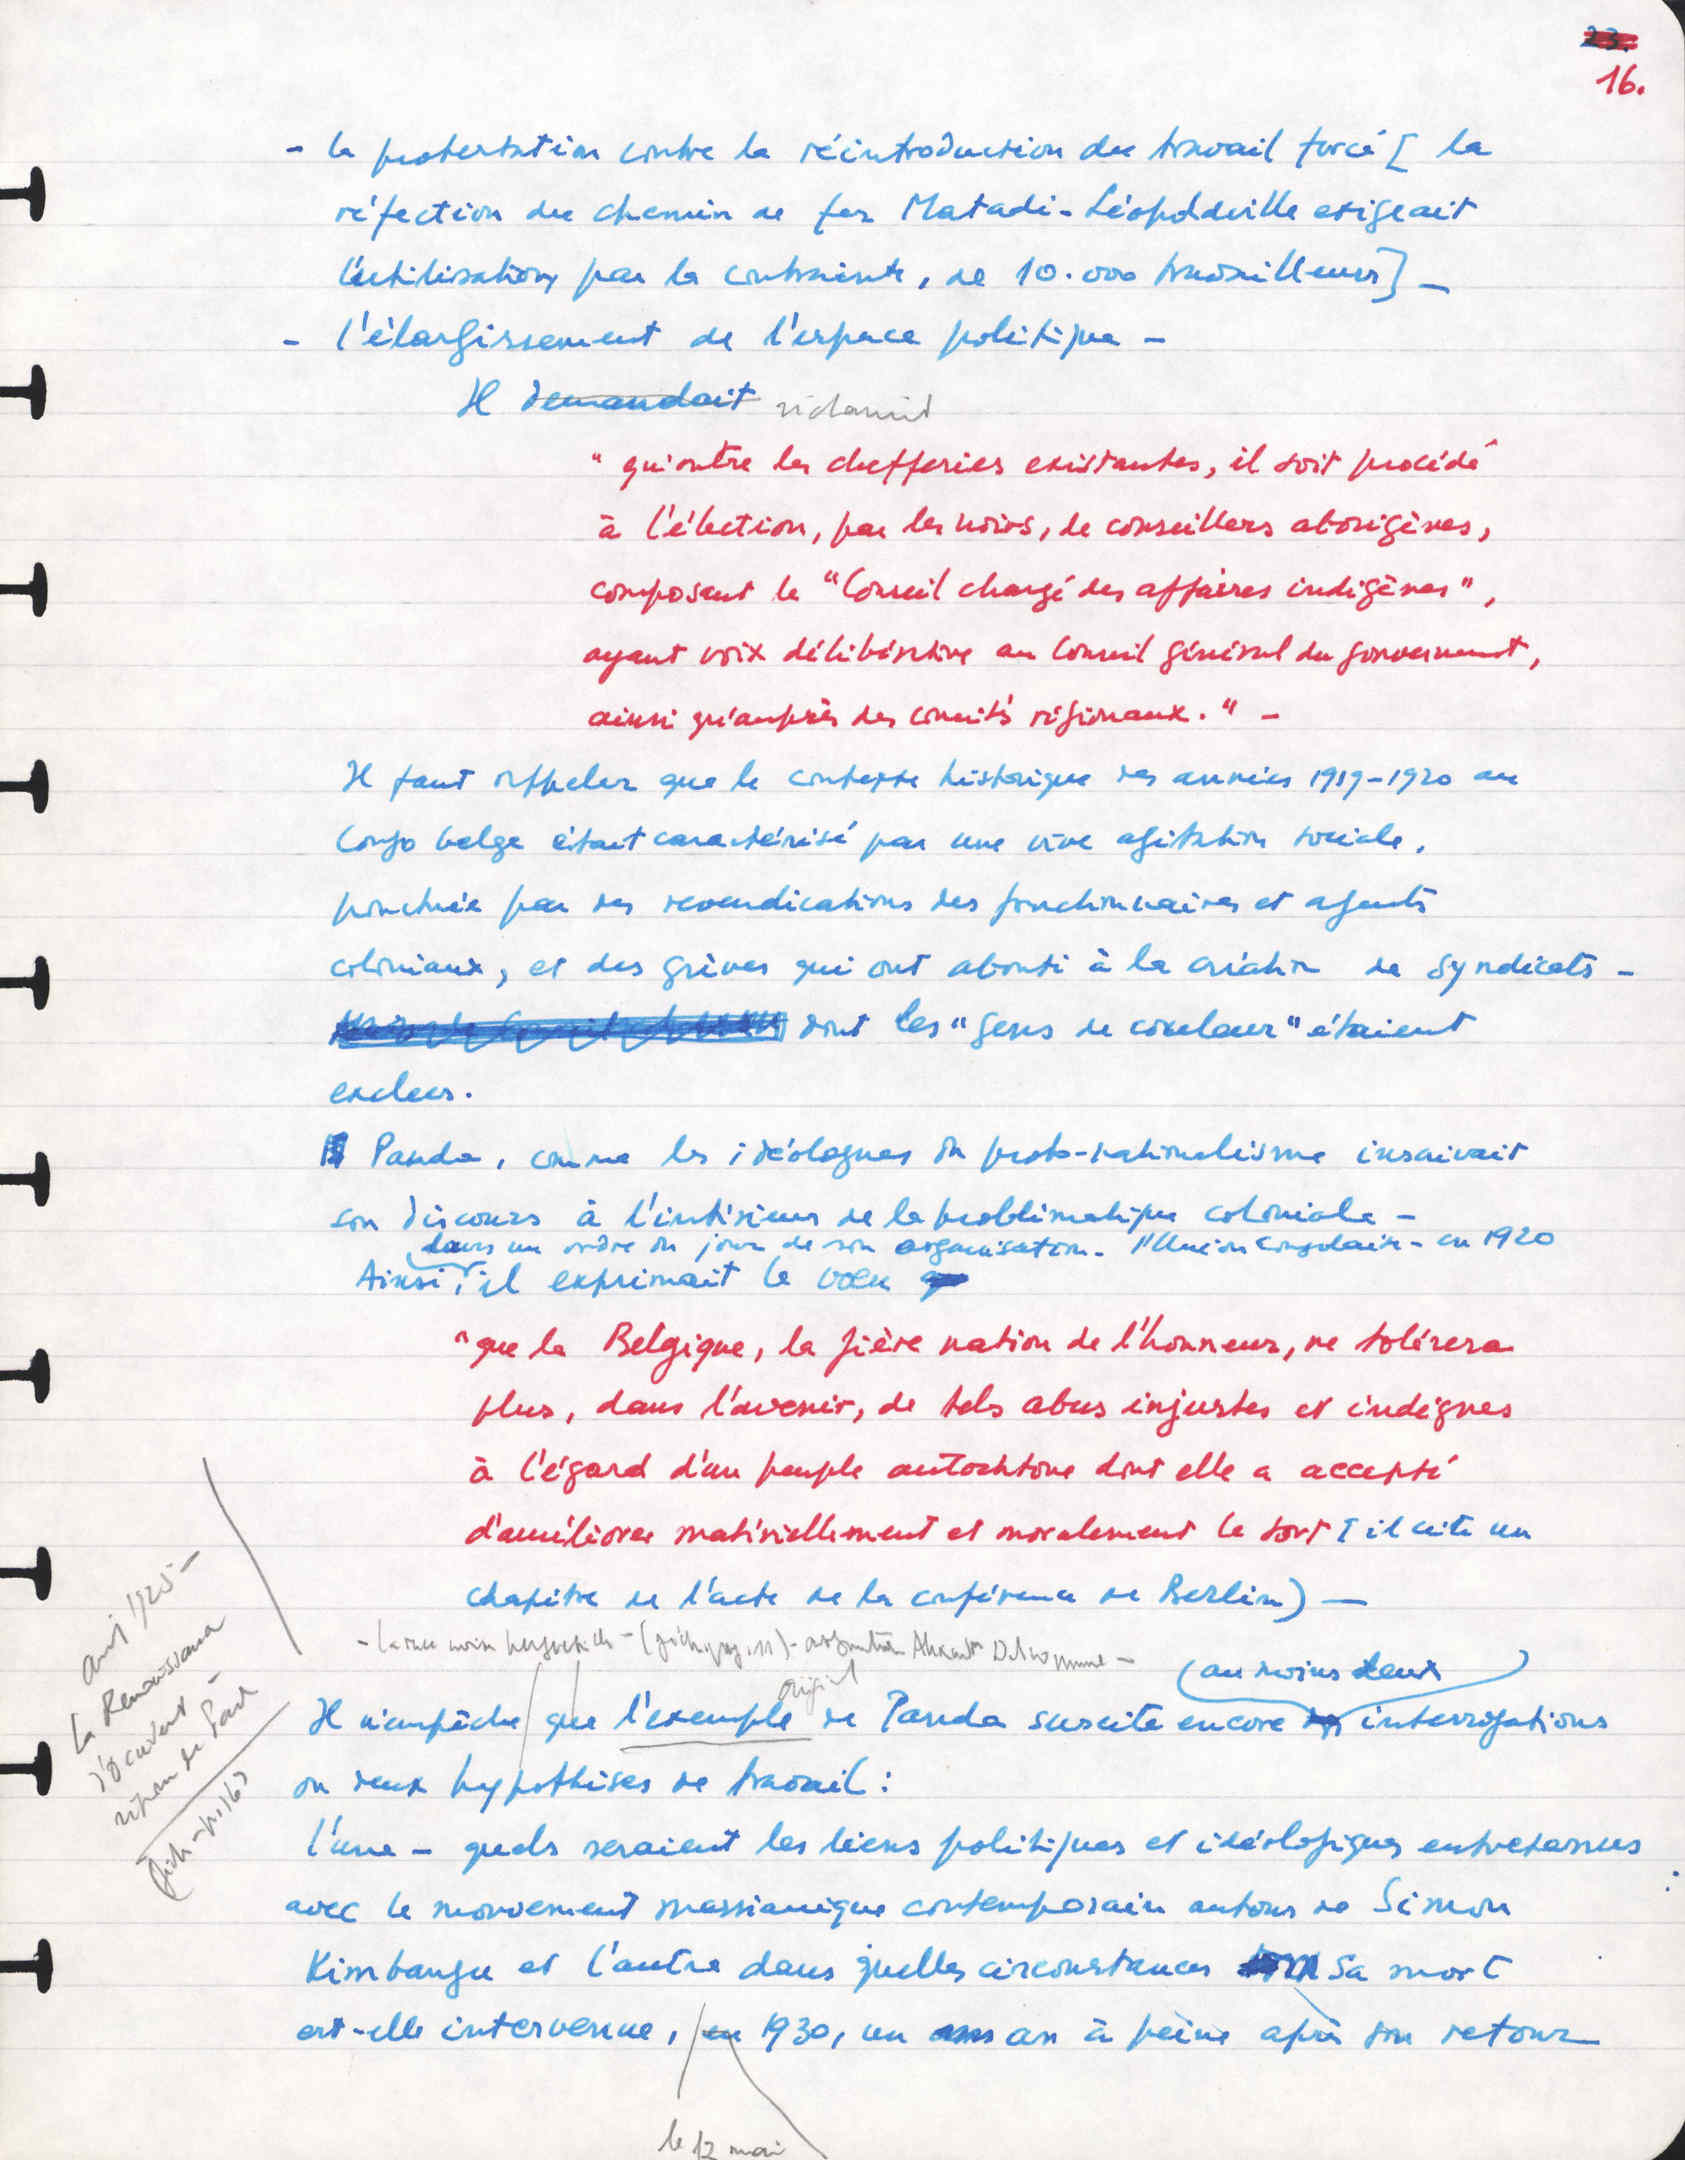 23.
16.
- la protestation contre la réintroduction du travail forcé [ la
réfection du chemin de fer Matadi-Léopoldville exigeait
l'utilisation, par la contrainte, de 10.000 travailleurs] -
- l'élargissement de l'espace politique -
Il demandait réclamait
" qu'outre les chefferies existantes, il soit procédé
à l'élection, par les noirs, de conseillers aborigènes,
composant le "Conseil chargé des affaires indigènes",
ayant voix délibérative au Conseil général du gouvernement,
ainsi qu'auprès des comités régionaux." -
Il faut rappeler que le contexte historique des années 1919-1920 au
Congo belge était caractérisé par une vive agitation sociale,
ponctuée par des revendications des fonctionnaires et agents
coloniaux, et des grèves qui ont abouti à la création de syndicats -
dont les "gens de couleur" étaient
exclus.
Panda, comme les idéologues du proto-nationalisme inscrivait
son discours à l'intérieur de la problématique coloniale -
dans un ordre du jour de son organisation - l'Union Congolaise - en 1920
Ainsi, il exprimait le voeu
"que la Belgique, la fière nation de l'honneur, ne tolérera
plus, dans l'avenir, de tels abus injustes et indignes
à l'égard d'un peuple autochtone dont elle a accepté
d'améliorer matériellement et moralement le sort [il cite un
chapitre de l'acte de la conférence de Berlin) -
avril 1925 -
La Renaissance
d'Occident -
- La race noire - Alexandre Delcommune -
(au moins deux)
original
Il n'empêche que l'exemple de Panda suscite encore des interrogations
ou deux hypothèses de travail :
l'une - quels seraient les liens politiques et idéologiques entretenus
avec le mouvement messianique contemporain autour de Simon
Kimbangu et l'autre dans quelles circonstances sa mort
est-elle intervenue, en 1930, un an à peine après son retour
le 12 mai